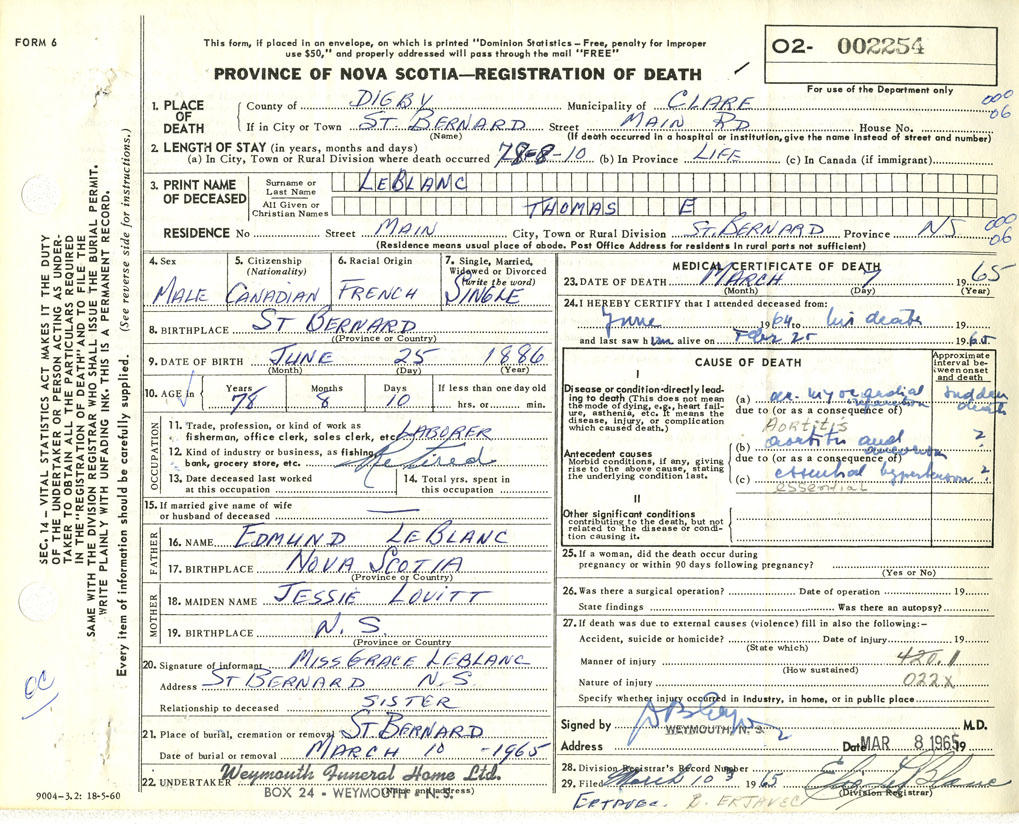 FORM 6
This form, if placed in an envelope, on which is printed "Dominion Statistics – Free, penalty for improper
use $50," and properly addressed will pass through the mail "FREE"
PROVINCE OF NOVA SCOTIA—REGISTRATION OF DEATH
02- 002254
For use of the Department only
1. PLACE OF DEATH
County of DIGBY Municipality of CLARE
000
06
If in City or Town ST BERNARD Street MAIN RD House No.
(Name) (If death occurred in a hospital or institution, give the name instead of street and number)
2. LENGTH OF STAY (in years, months and days)
(a) In City, Town or Rural Division where death occurred 78-8-10 (b) In Province LIFE (c) In Canada (if immigrant)
3. PRINT NAME OF DECEASED
Surname or Last Name LEBLANC
All Given or Christian Names THOMAS E
RESIDENCE No Street MAIN City, Town or Rural Division ST. BERNARD Province NS
000
06
(Residence means usual place of abode. Post Office Address for residents in rural parts not sufficient)
4. Sex
MALE
5. Citizenship
(Nationality)
CANADIAN
6. Racial Origin
FRENCH
7. Single, Married,
Widowed or Divorced
(write the word)
SINGLE
8. BIRTHPLACE ST BERNARD
(Province or Country)
9. DATE OF BIRTH JUNE 25 1886
(Month) (Day) (Year)
10. AGE
Years Months Days If less than one day old
78 8 10 hrs. or min.
OCCUPATION
11. Trade, profession, or kind of work as
fisherman, office clerk, sales clerk, etc. LABORER
12. Kind of industry or business, as fishing,
bank, grocery store, etc. Retired
13. Date deceased last worked
at this occupation
14. Total yrs. spent in
this occupation
15. If married give name of wife
or husband of deceased —
FATHER
16. NAME EDMUND LEBLANC
17. BIRTHPLACE NOVA SCOTIA
(Province or Country)
MOTHER
18. MAIDEN NAME JESSIE LOVITT
19. BIRTHPLACE N. S.
(Province or Country)
20. Signature of informant MISS GRACE LEBLANC
Address ST BERNARD N.S.
Relationship to deceased SISTER
21. Place of burial, cremation or removal ST BERNARD
Date of burial or removal MARCH 10 -1965
22. UNDERTAKER Weymouth Funeral Home Ltd.
(Name and address)
BOX 24 - WEYMOUTH - N. S.
9004-3.2: 18-5-60
MEDICAL CERTIFICATE OF DEATH
23. DATE OF DEATH MARCH 7 1965
(Month) (Day) (Year)
24. I HEREBY CERTIFY that I attended deceased from:
June 1964 to his death 19
and last saw him alive on Feb 25 1965
CAUSE OF DEATH
Approximate
interval be-
tween onset
and death
I
Disease or condition directly lead-
ing to death (This does not mean
the mode of dying, e.g., heart fail-
ure, asthenia, etc. It means the
disease, injury, or complication
which caused death.)
(a) ac. myocardial
sudden death
due to (or as a consequence of)
AORTITIS
Antecedent causes
Morbid conditions, if any, giving
rise to the above cause, stating
the underlying condition last.
(b) aortitis and aneurysm ?
due to (or as a consequence of)
(c) essential hypertension ?
ESSENTIAL
II
Other significant conditions
contributing to the death, but not
related to the disease or condi-
tion causing it.
25. If a woman, did the death occur during
pregnancy or within 90 days following pregnancy?
(Yes or No)
26. Was there a surgical operation? Date of operation 19
State findings Was there an autopsy?
27. If death was due to external causes (violence) fill in also the following:-
Accident, suicide or homicide? Date of injury 19
(State which)
Manner of injury 420.1
(How sustained)
Nature of injury 022X
Specify whether injury occurred in Industry, in home, or in public place
Signed by M.D.
WEYMOUTH, N. S.
Address Date MAR 8 1965 19
28. Division Registrar's Record Number
29. Filed March 10 1965
(Division Registrar)
R. ERJAVEC
SEC. 14 – VITAL STATISTICS ACT MAKES IT THE DUTY
OF THE UNDERTAKER OR PERSON ACTING AS UNDER-
TAKER TO OBTAIN ALL THE PARTICULARS REQUIRED
IN THE "REGISTRATION OF DEATH" AND TO FILE THE
SAME WITH THE DIVISION REGISTRAR WHO SHALL ISSUE THE BURIAL PERMIT.
WRITE PLAINLY WITH UNFADING INK. THIS IS A PERMANENT RECORD.
Every item of information should be carefully supplied. (See reverse side for instructions.)